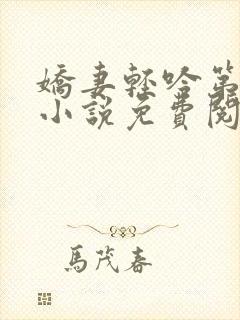 嬌妻輕吟第
小說免費閱
馬茂春